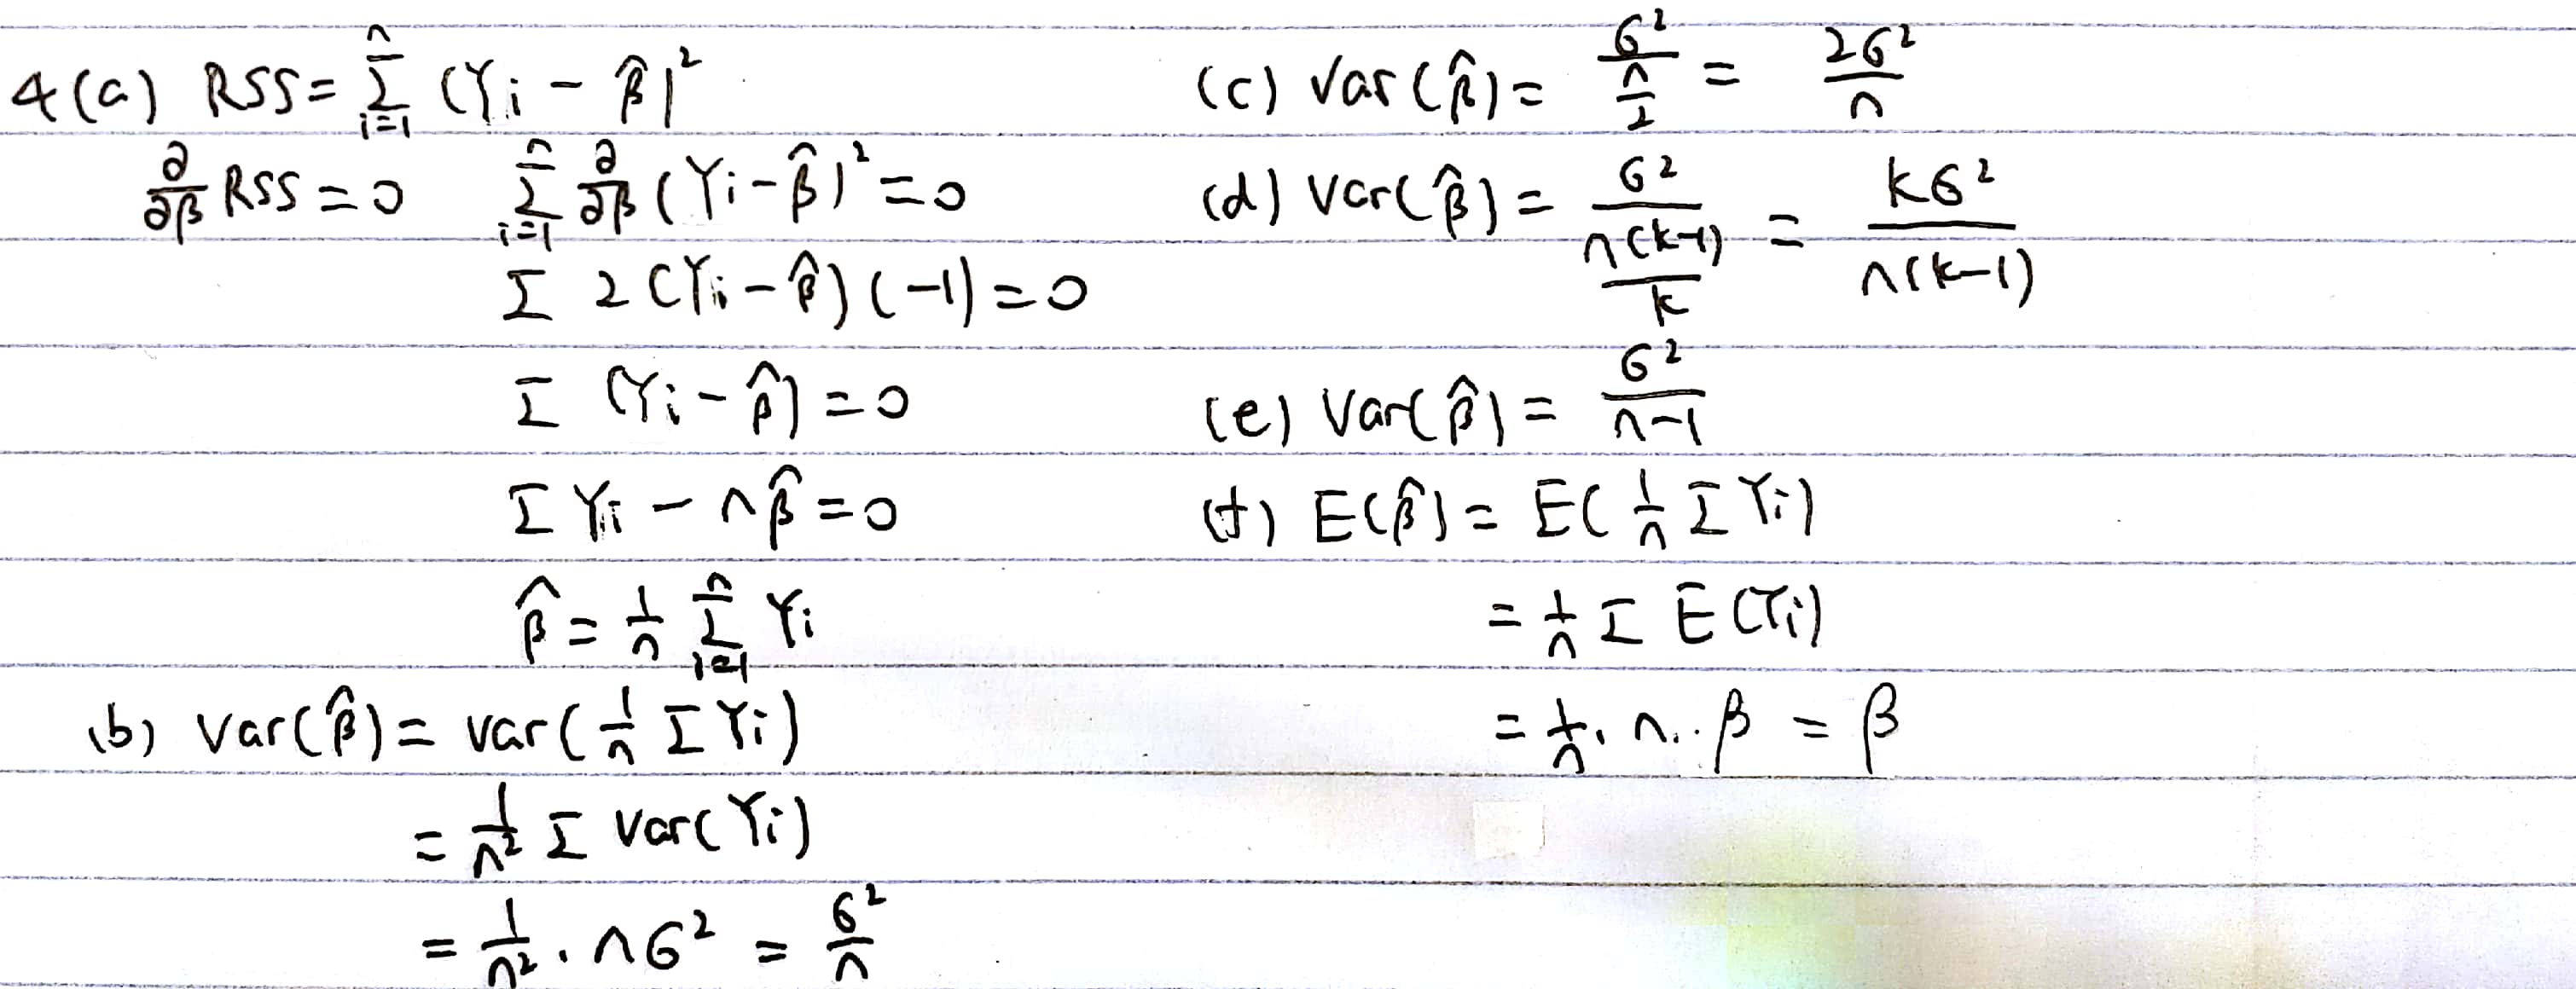 4(a) RSS = \sum_{i=1}^{n} (Y_i - \hat{β})^2
\frac{∂}{∂β} RSS = 0   \sum_{i=1}^{n} \frac{∂}{∂β} (Y_i - \hat{β})^2 = 0
Σ 2(Y_i - \hat{β})(-1) = 0
Σ (Y_i - \hat{β}) = 0
Σ Y_i - n\hat{β} = 0
\hat{β} = \frac{1}{n} \sum_{i=1}^{n} Y_i
(b) Var(\hat{β}) = Var(\frac{1}{n} Σ Y_i)
= \frac{1}{n^2} Σ Var(Y_i)
= \frac{1}{n^2} · nσ^2 = \frac{σ^2}{n}
(c) Var(\hat{β}) = \frac{σ^2}{\frac{n}{2}} = \frac{2σ^2}{n}
(d) Var(\hat{β}) = \frac{σ^2}{\frac{n(k-1)}{k}} = \frac{kσ^2}{n(k-1)}
(e) Var(\hat{β}) = \frac{σ^2}{n-1}
(f) E(\hat{β}) = E(\frac{1}{n} Σ Y_i)
= \frac{1}{n} Σ E(Y_i)
= \frac{1}{n} · n · β = β